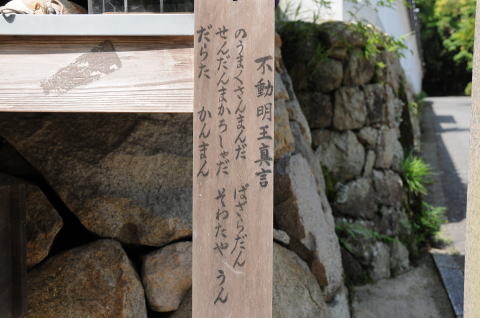 不動明王真言
のうまくさんまんだ　ばざらだん
せんだんまかろしゃだ　そわたや　うん
だらた　かんまん